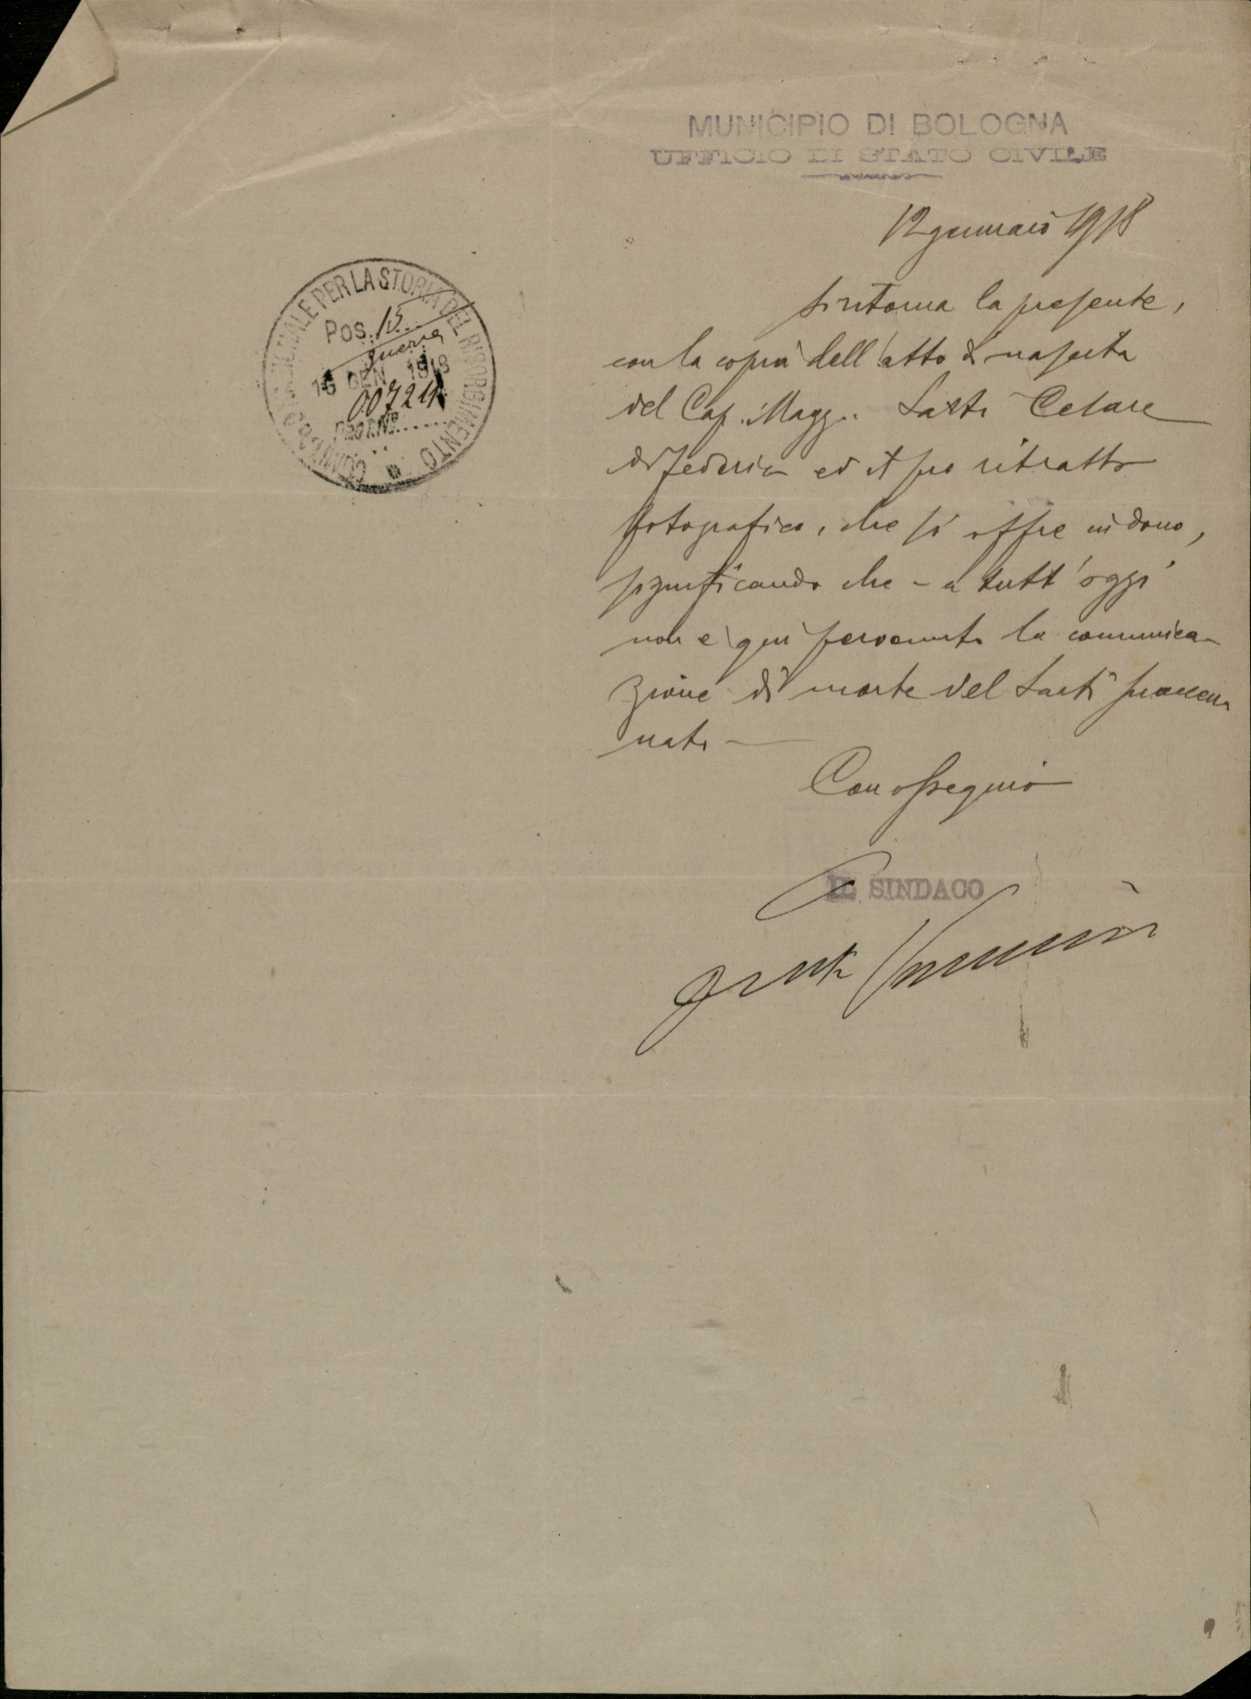 MUNICIPIO DI BOLOGNA
UFFICIO DI STATO CIVILE
12 gennaio 1918
COMITATO NAZIONALE PER LA STORIA DEL RISORGIMENTO
Pos. 15
guerra
16 GEN. 1918
00724
Prot. N°
Si ritorna la presente,
con la copia dell'atto di nascita
del Cap. Magg. Sarti Cesare
di Federico ed il suo ritratto
fotografico, che si offre in dono,
significando che - a tutt'oggi
non è qui pervenuta la comunica-
zione di morte del Sarti
nato -
Con ossequio
IL SINDACO